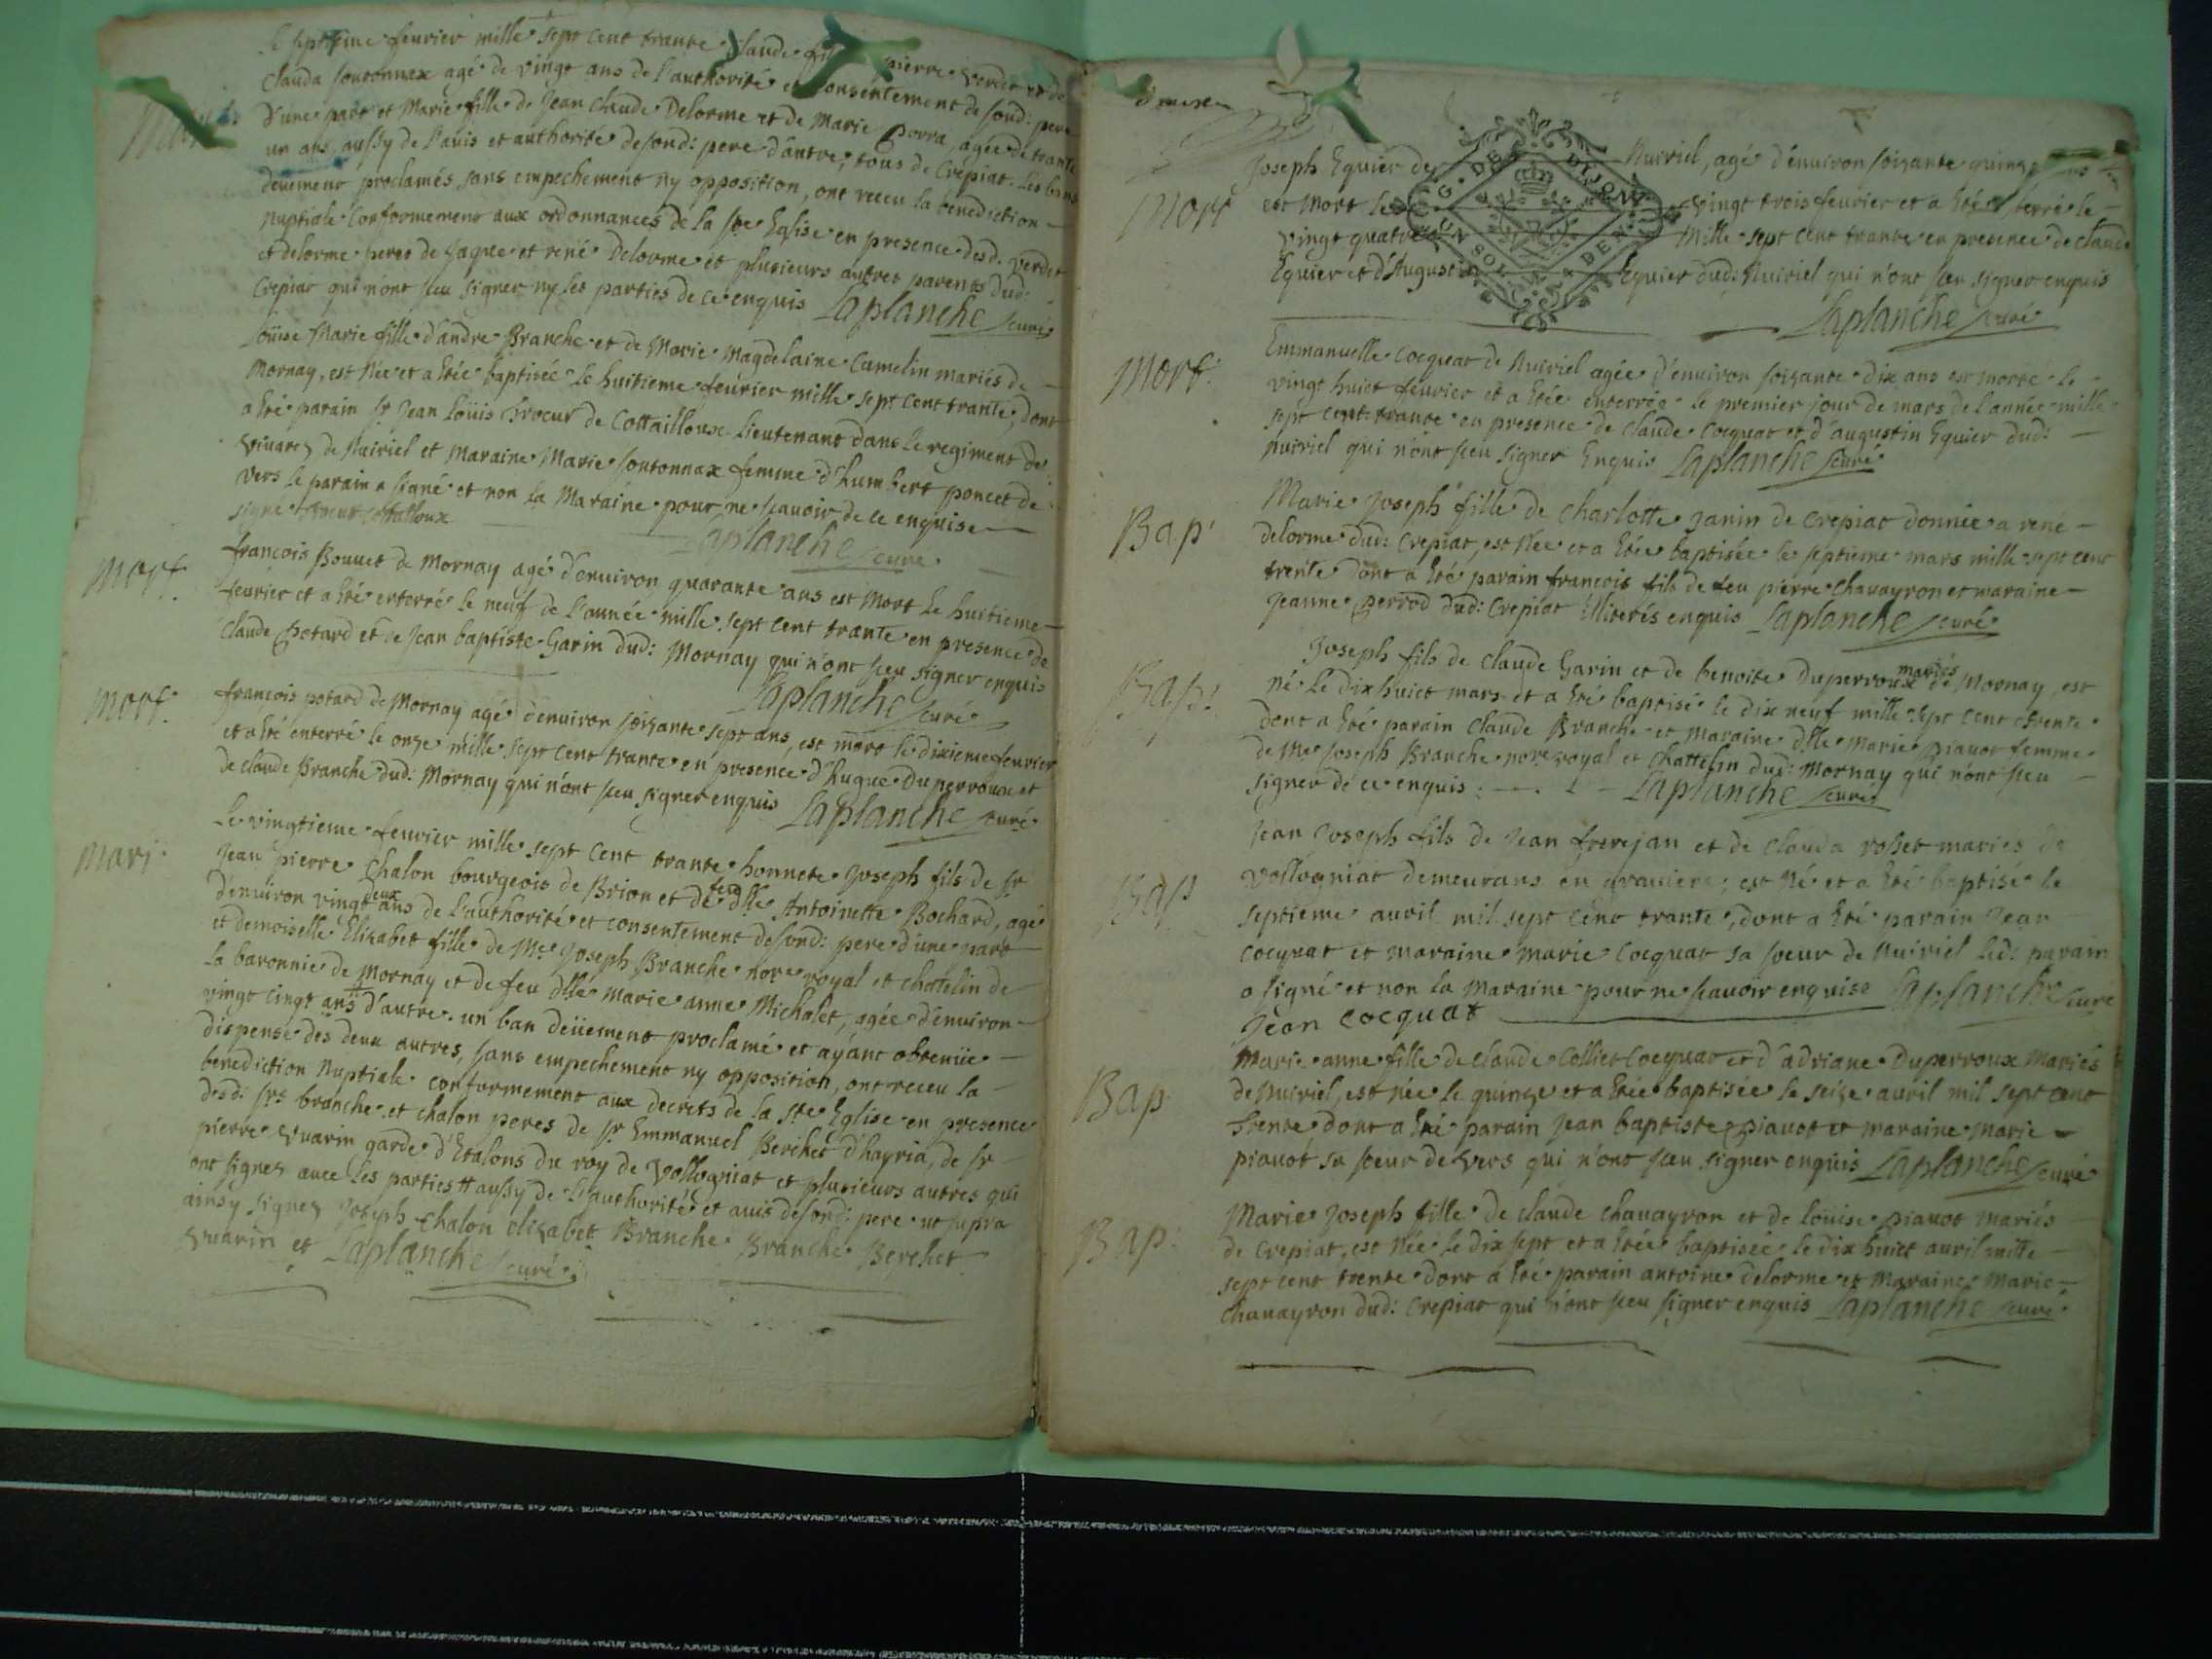 Le septieme fevrier mille sept cent trante Claude fils pierre verdet et de
Clauda soutonnax agé de vingt ans de l'authorité et consentement de sond: pere
Mari:
d'une part et Marie fille de Jean Claude Delorme et de Marie porra, agée de trante
un ans aussy de l'avis et authorité de sond: pere d'autre, tous de Crepiat. Les bans
deuement proclamés sans empechement ny opposition, ont receu la benediction
nuptiale conformement aux ordonnances de la ste Eglise en presence desd. verdet
et delorme peres de Jaque et rené Delorme et plusieurs autres parents dud:
Crepiat qui n'ont sceu signer ny les parties de ce enquis Laplanche curé
Loüise Marie fille d'andre Branche et de Marie Magdelaine Camelin mariés de
Mornay, est née et a été baptisée le huitieme fevrier mille sept cent trante, dont
a été parain sr Jean Loüis Trocur de Cottailloux Lieutenant dans le regiment de
vivarez de Nuiriel et Maraine Marie soutonnax femme d'humbert poncet de
vers le parain a signé et non la Maraine pour ne scavoir de ce enquise
signé
Laplanche curé
Mort.
francois Bouvet de Mornay agé d'environ quarante ans est Mort le huitieme
fevrier et a été enterré le neuf de l'année mille sept cent trante en presence de
Claude potard et de Jean baptiste Garin dud: Mornay qui n'ont sceu signer enquis
Laplanche curé
Mort.
francois potard de Mornay agé d'environ soizante sept ans, est mort le dixieme fevrier
et a été enterré le onze mille sept cent trante en presence d'hugue Duperroux et
de Claude Branche dud: Mornay qui n'ont sceu signer enquis Laplanche curé
Mari.
Le vingtieme fevrier mille sept cent trante honnete Joseph fils de sr
Jean pierre Chalon bourgeois de Brion et de feu dlle Antoinette Bochard, agé
d'environ vingt deux ans de l'authorité et consentement de sond: pere d'une part
et demoiselle Elizabet fille de Me Joseph Branche nore royal et chatelin de
la baronnie de Mornay et de feu dlle marie anne Michalet, agée d'environ
vingt cinqt ans d'autre. un ban deüement proclamé et ayant obtenüe
dispense des deux autres, sans empechement ny opposition, ont receu la
benediction Nuptiale conformement aux decrets de la ste Eglise en presence
desd: srs branche et chalon peres de sr Emmanuel Berchet d'hayria, de sr
pierre vuarin garde d'Etalons du roy de vollogniat et plusieurs autres qui
ont signez avec les parties # aussy de l'authorité et avis de sond: pere ut supra
ainsy signez Joseph Chalon elizabet Branche Branche Berchet
vuarin et Laplanche curé.
Joseph Equier de Nuiriel, agé d'environ soizante quinze ans
Mort
est Mort le vingt trois fevrier et a été enterré le
vingt quatre Mille sept cent trante en presence de claude
Equier et d'Augustin Equier dud: Nuiriel qui n'ont sceu signer enquis
Laplanche curé
Mort.
Emmanuelle Cocquat de Nuiriel agée d'environ soizante dix ans est morte le
vingt huict fevrier et a étée enterrée le premier jour de mars de l'année mille
sept cent trante en presence de Claude Cocquat et d'augustin Equier dud:
nuiriel qui n'ont sceu signer Enquis Laplanche curé
Bap:
Marie Joseph fille de Charlotte Janin de Crepiat donnée a rene
delorme dud: Crepiat, est Née et a étée baptisée le septieme mars mille sept cent
trente dont a été parain francois fils de feu pierre Chavayron et maraine
Jeanne perrod dud: Crepiat illiterés enquis Laplanche curé
Bap:
Joseph fils de Claude Garin et de benoite Duperroux mariés de Mornay, est
né le dix huict mars et a été baptisé le dix neuf mille sept cent trente
dont a été parain Claude Branche et Maraine dlle Marie piavot femme
de Me Joseph Branche nore royal et chattelin dud: Mornay qui n'ont sceu
signer de ce enquis: Laplanche curé
Bap
Jean Joseph fils de Jean frerejan et de Clauda rosset mariés de
Vollogniat demeurans en graviere; est Né et a été baptisé le
septieme avril mil sept cent trante, dont a été parain Jean
Cocquat et maraine marie Cocquat sa soeur de Nuiriel led: parain
a signé et non la Maraine pour ne scavoir enquise Laplanche curé
Jean cocquat
Bap
Marie anne fille de Claude Colliet Cocquat et d'adriane Duperroux Mariés
de Nuiriel, est née le quinze et a étée baptisée le seize avril mil sept cent
Trente dont a été parain Jean baptiste piavot et maraine Marie
piavot sa soeur de Vers qui n'ont sceu signer enquis Laplanche curé
Bap:
Marie Joseph fille de claude Chavayron et de Loüise piavot mariés
de Crepiat, est Née le dix sept et a étée baptisée le dix huict avril mille
sept cent trente dont a été parain antoine delorme et Maraine Marie
Chavayron dud: Crepiat qui n'ont sceu signer enquis Laplanche curé